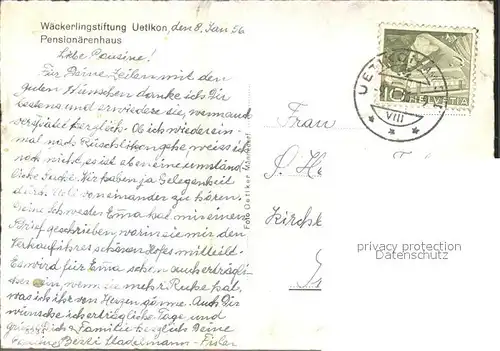 Wäckerlingstiftung Uetikon, den 8. Jan 56
Pensionärenhaus
Liebe Cousine!
Für Deine Zeilen mit den
guten Wünschen danke ich Dir
bestens und erwiedere sie, wenn auch
verspätet herzlich. Ob ich wieder ein-
mal nach Rüschlikon gehe, weiss ich
noch nicht, es ist eben eine umständ-
liche Sache. Wir haben ja Gelegenheit
durch von einander zu hören.
Deine Schwester Ema hat mir einen
Brief geschrieben, worin sie mir den
Verkauf ihres schönen Hofes mitteilt.
Es wird für Ema schon auch erträgli-
cher sein, wenn sie mehr Ruhe hat,
was ich ihr von Herzen gönne. Auch Dir
wünsche ich erträgliche Tage, und
grüsse Dich & Familie herzlich Deine
Cousine Stadelmann-Fisler
Foto Oetiker Männedorf
UETIKON
VIII
10 HELVETIA
Frau
S. He
Kirchb
privacy protection
Datenschutz